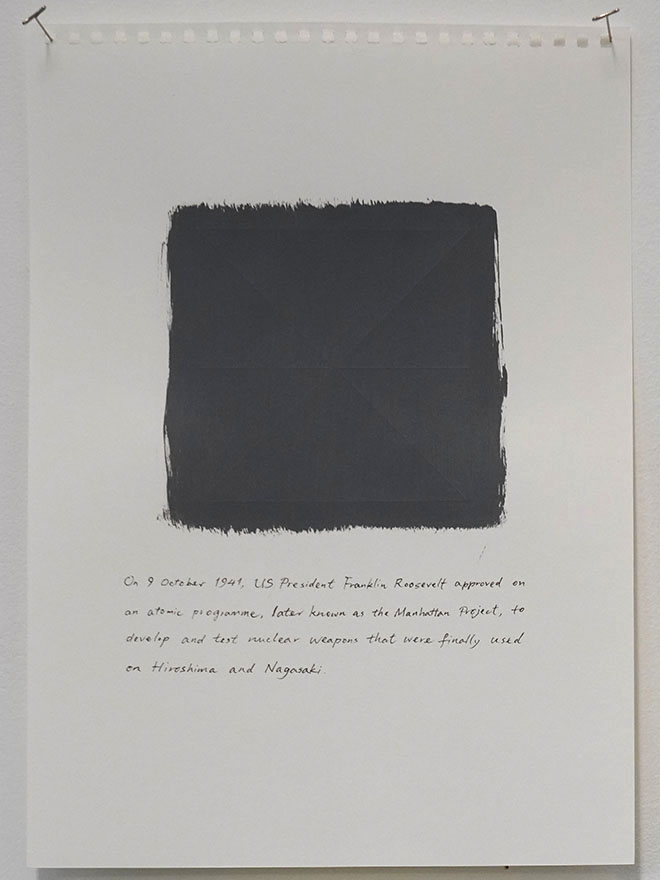 On 9 October 1941, US President Franklin Roosevelt approved on
an atomic programme, later known as the Manhattan Project, to
develop and test nuclear weapons that were finally used
on Hiroshima and Nagasaki.